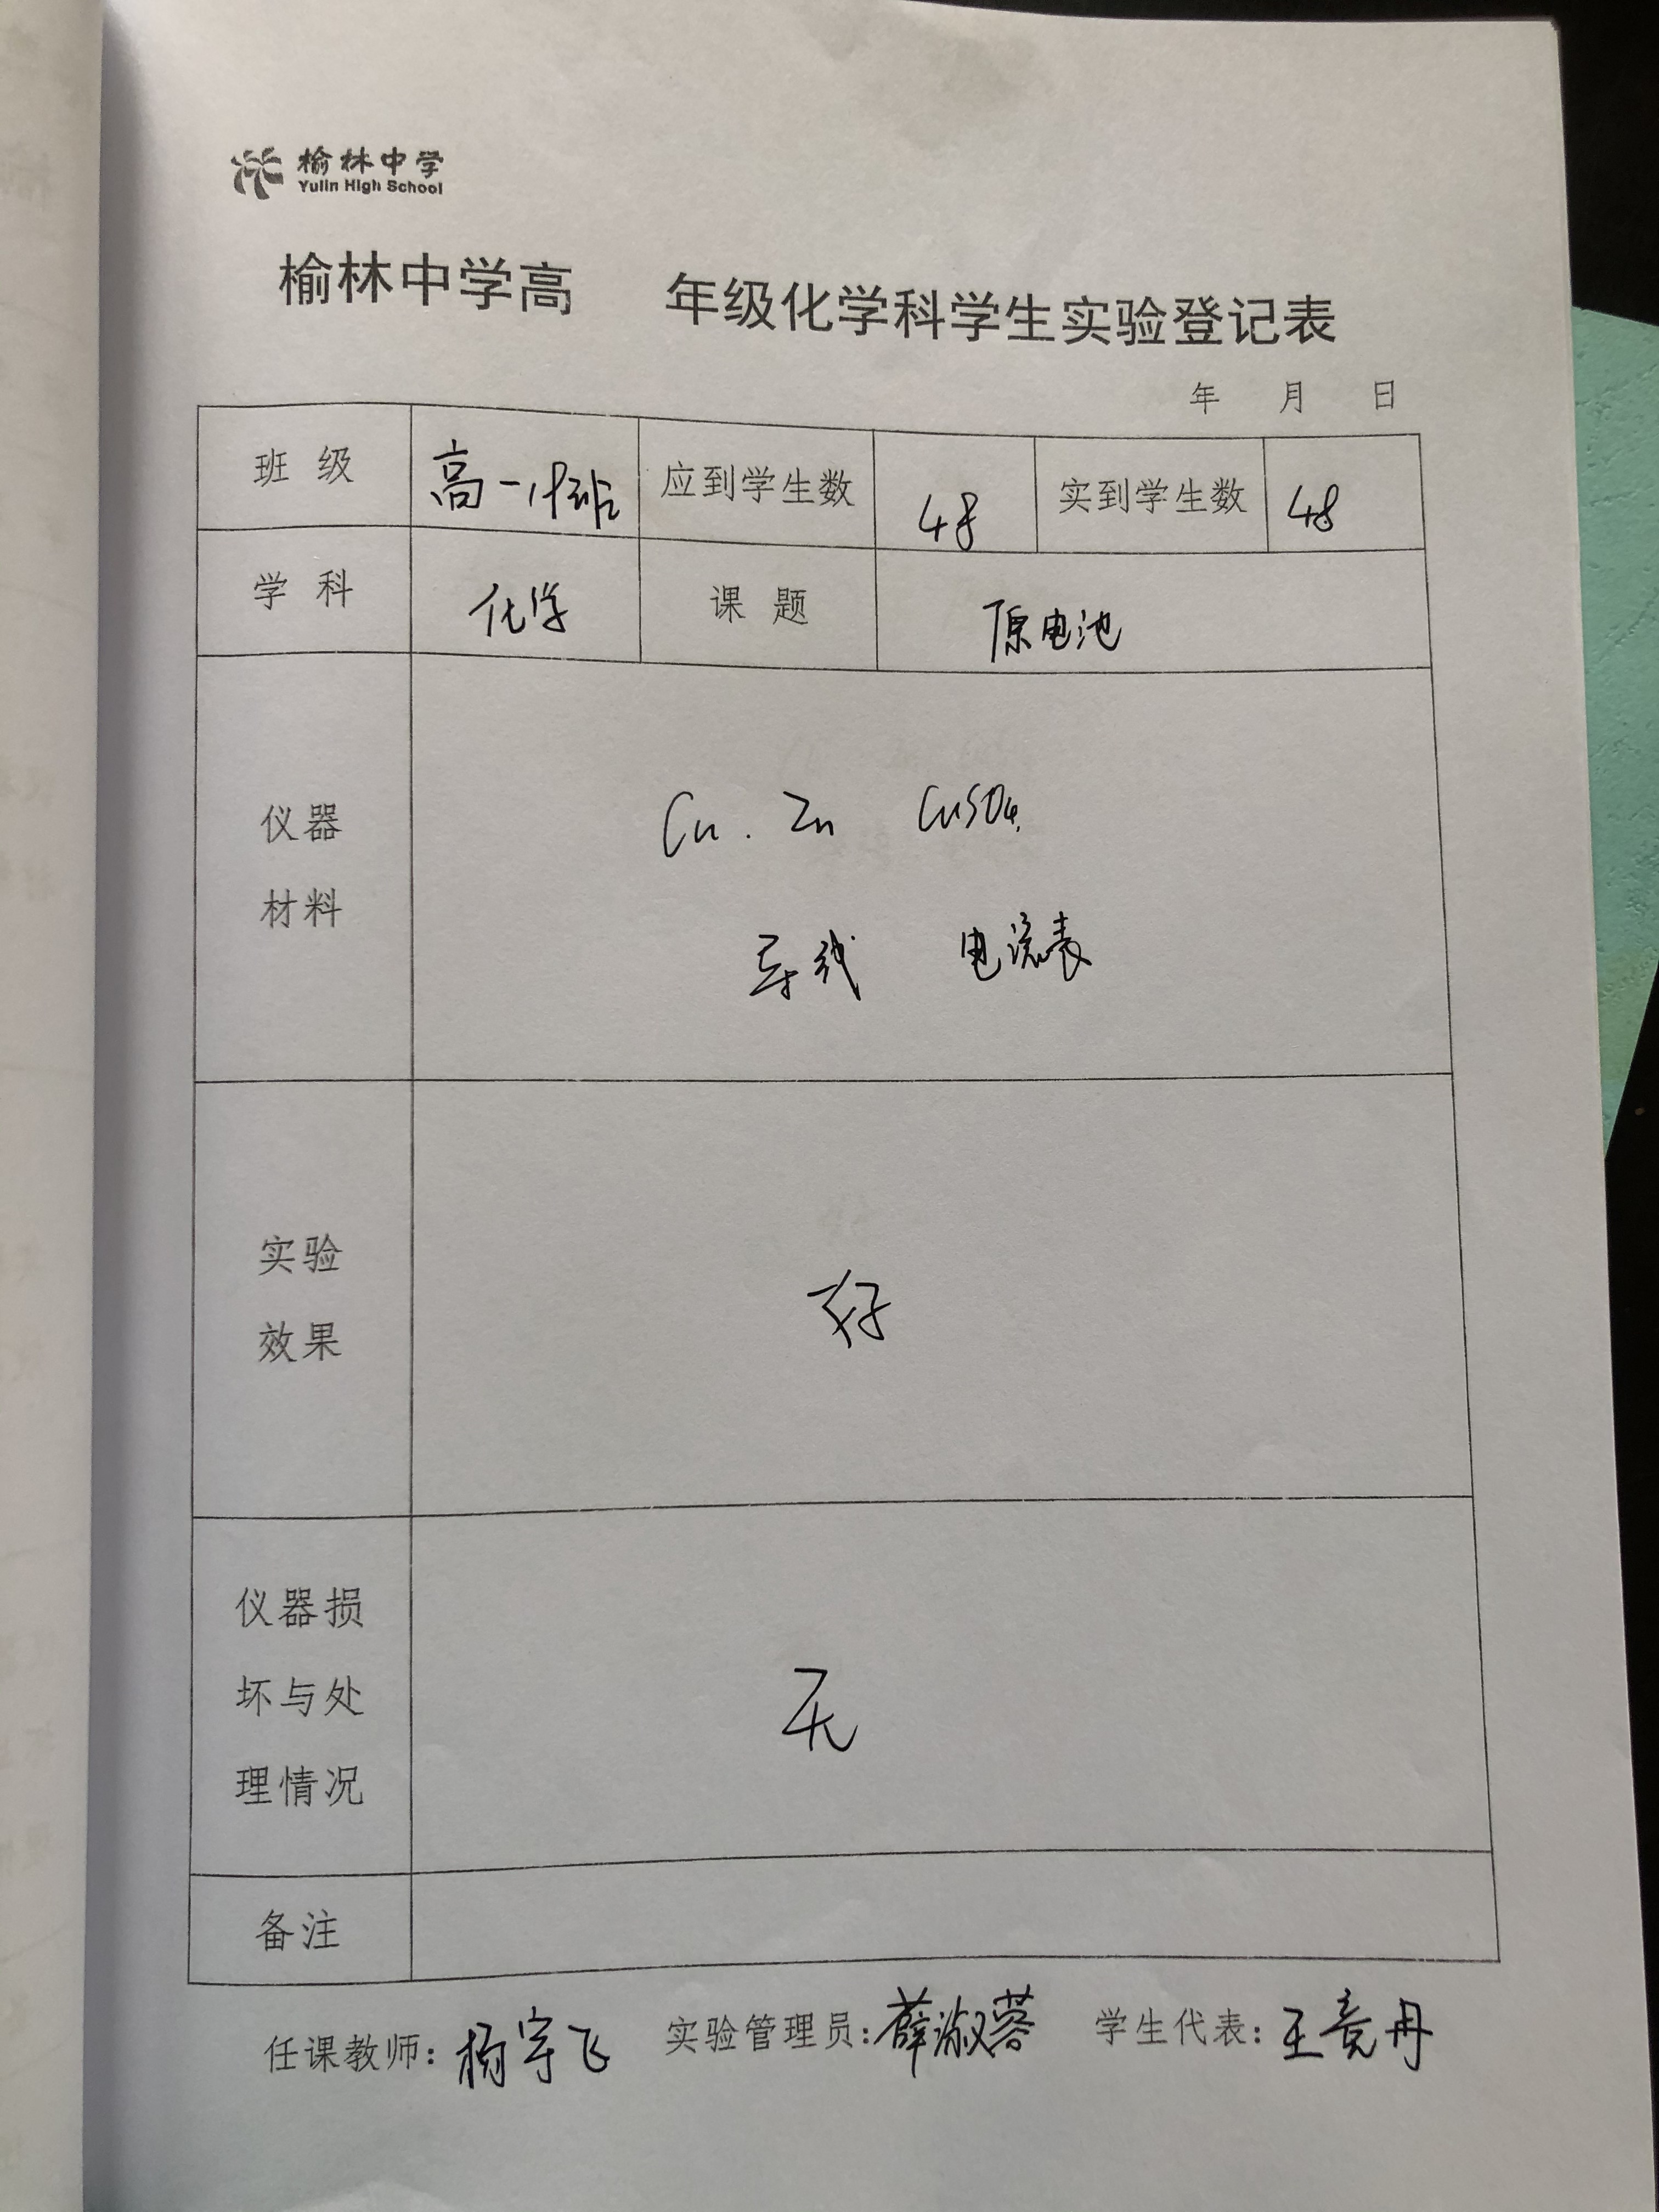 榆林中学
Yulin High School
榆林中学高 年级化学科学生实验登记表
年 月 日
班 级 高一 班 应到学生数 48 实到学生数 48
学 科 化学 课 题 原电池
仪器
材料
Cu . Zn CuSO4.
导线 电流表
实验
效果
好
仪器损
坏与处
理情况
无
备注
任课教师: 杨宇飞 实验管理员: 薛淑蓉 学生代表: 王竟丹